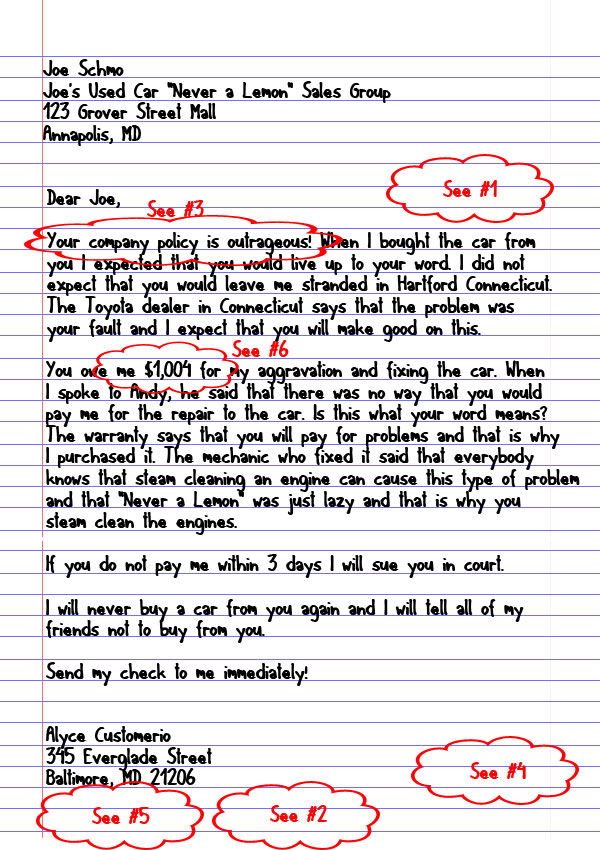 Joe Schmo
Joe's Used Car "Never a Lemon" Sales Group
123 Grover Street Mall
Annapolis, MD
See #1
Dear Joe,
See #3
Your company policy is outrageous! When I bought the car from
you I expected that you would live up to your word. I did not
expect that you would leave me stranded in Hartford Connecticut.
The Toyota dealer in Connecticut says that the problem was
your fault and I expect that you will make good on this.
See #6
You owe me $1,004 for my aggravation and fixing the car. When
I spoke to Andy, he said that there was no way that you would
pay me for the repair to the car. Is this what your word means?
The warranty says that you will pay for problems and that is why
I purchased it. The mechanic who fixed it said that everybody
knows that steam cleaning an engine can cause this type of problem
and that "Never a Lemon" was just lazy and that is why you
steam clean the engines.
If you do not pay me within 3 days I will sue you in court.
I will never buy a car from you again and I will tell all of my
friends not to buy from you.
Send my check to me immediately!
Alyce Customerio
345 Everglade Street
Baltimore, MD 21206
See #4
See #5
See #2